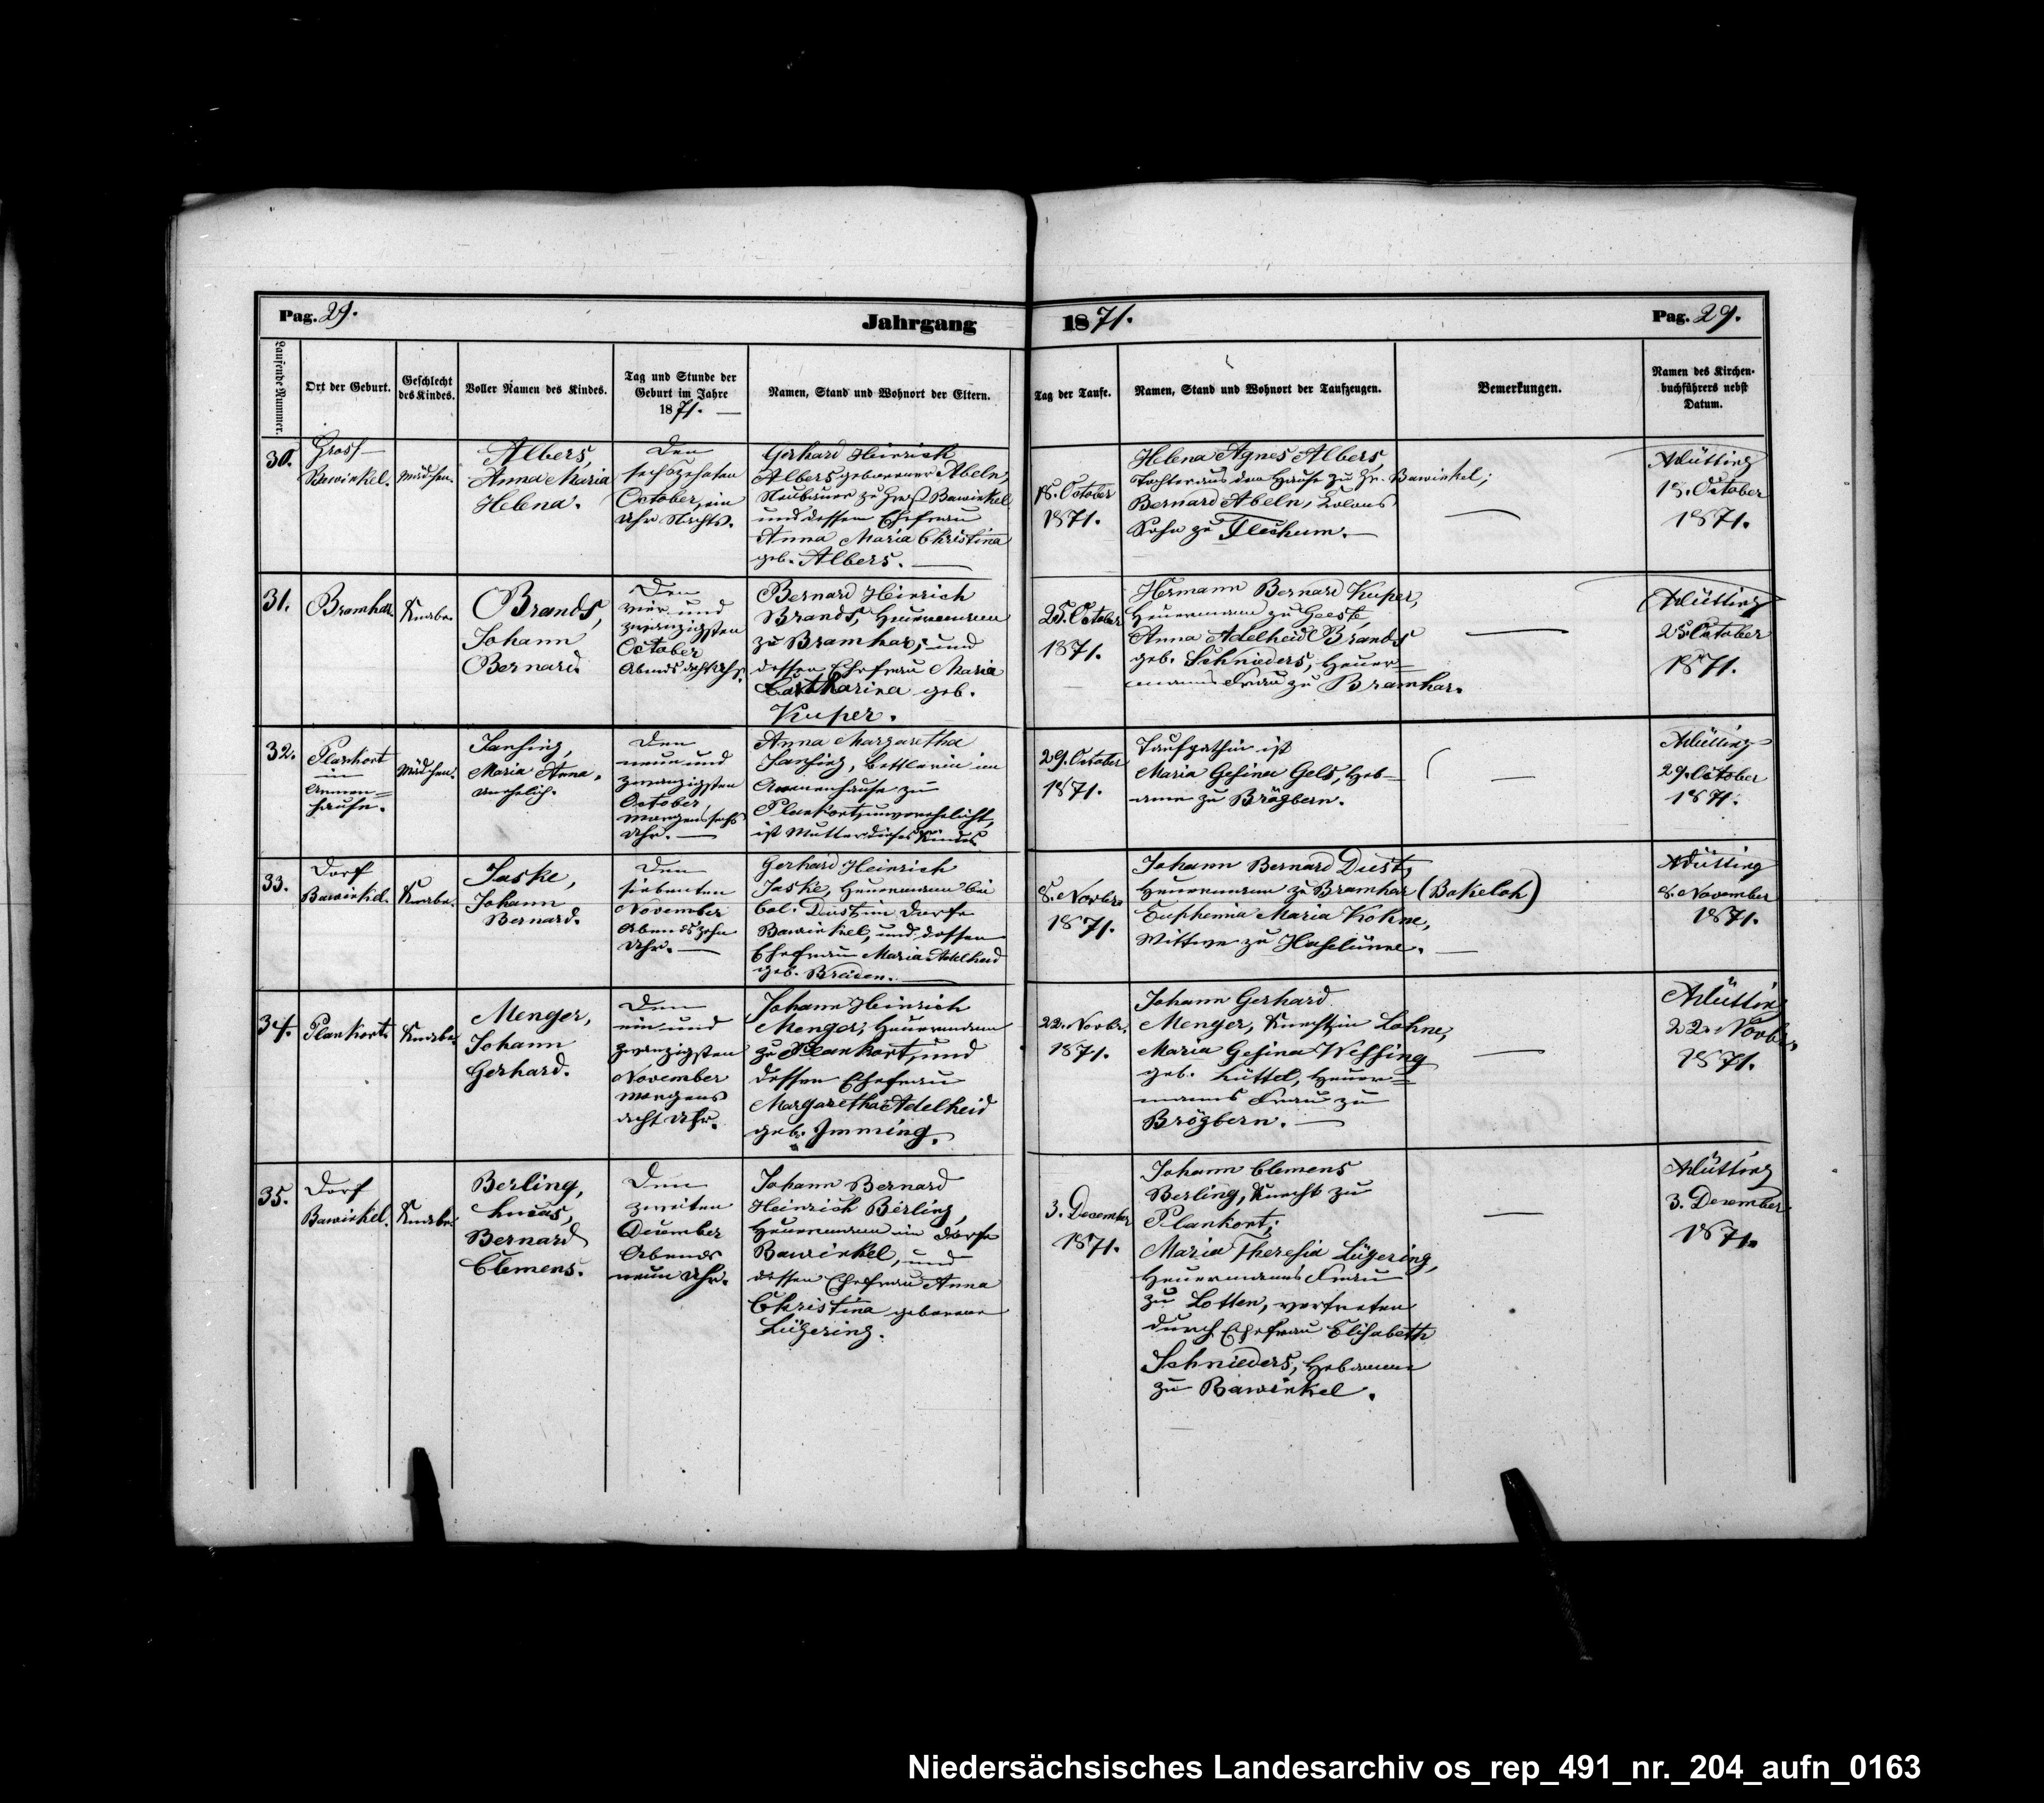 Pag. 29.
Jahrgang 1871.
Pag. 29.
Laufende Nummer.
Ort der Geburt.
Geschlecht
des Kindes.
Voller Namen des Kindes.
Tag und Stunde der
Geburt im Jahre
1871.
Namen, Stand und Wohnort der Eltern.
Tag der Taufe.
Namen, Stand und Wohnort der Taufzeugen.
Bemerkungen.
Namen des Kirchen-
buchführers nebst
Datum.
30.
Gross
Bawinkel.
Mädchen.
Albers,
Anna Maria
Helena.
Den
sechszehnten
October, ein
Uhr Nachts.
Gerhard Heinrich
Albers geborener Abeln,
Neubauer zu Groß Bawinkel
und dessen Ehefrau
Anna Maria Christina
geb. Albers.
18. October
1871.
Helena Agnes Albers,
Tochter aus dem Hause zu Gr. Bawinkel;
Bernard Abeln, Colons
Sohn zu Flechum.
18. October
1871.
31.
Bramhar.
Knabe.
Brands,
Johann
Bernard.
Den
vier und
zwanzigsten
October
Abends acht Uhr.
Bernard Heinrich
Brands, Heuermann
zu Bramhar, und
dessen Ehefrau Maria
Catharina geb.
Kuper.
25. October
1871.
Hermann Bernard Kuper,
Heuermann zu Geeste,
Anna Adelheid Brands
geb. Schnieders, Heuer=
manns Frau zu Bramhar.
25. October
1871.
32.
Plankort
im
Armen=
hause.
Mädchen.
Sanfing,
Maria Anna.
unehelich.
Den
neun und
zwanzigsten
October,
morgens sechs
Uhr.
Anna Margaretha
Sanfing, Bettlerin im
Armenhause zu
Plankort, unverehelicht,
ist Mutter dieses Kindes
29. October
1871.
Taufpathin ist
Maria Gesina Gels, Heb=
amme zu Brögbern.
29. October
1871.
33.
Dorf
Bawinkel.
Knabe.
Jaske,
Johann
Bernard.
Den
siebenten
November
Abends zehn
Uhr.
Gerhard Heinrich
Jaske, Heuermann bei
Col. Dust im Dorfe
Bawinkel, und dessen
Ehefrau Maria Adelheid
geb.
8. Novbr.
1871.
Johann Bernard Dust,
Heuermann zu Bramhar (Bakeloh)
Euphemia Maria Kohne,
Wittwe zu Haselünne.
8. November
1871.
34.
Plankort.
Knabe.
Menger,
Johann
Gerhard.
Den
ein und
zwanzigsten
November
morgens
acht Uhr.
Johann Heinrich
Menger, Heuermann
zu Plankort, und
dessen Ehefrau
Margaretha Adelheid
geb. Imming.
22. Novbr.
1871.
Johann Gerhard
Menger, Knecht in Lohne,
Maria Gesina Wessing
geb. Lüttel, Heuer=
manns Frau zu
Brögbern.
22. Novbr.
1871.
35.
Dorf
Bawinkel.
Knabe.
Berling,
Lucas,
Bernard
Clemens.
Den
zweiten
December
Abends
neun Uhr.
Johann Bernard
Heinrich Berling,
Heuermann im Dorfe
Bawinkel, und
dessen Ehefrau Anna
Christina geborene
Lügering.
3. December
1871.
Johann Clemens
Berling, Knecht zu
Plankort;
Maria Theresia Lügering,
Heuermanns Frau
zu Lotten, vertreten
durch Ehefrau Elisabeth
Schnieders, Hebamme
zu Bawinkel.
3. December
1871.
Niedersächsisches Landesarchiv os_rep_491_nr._204_aufn_0163